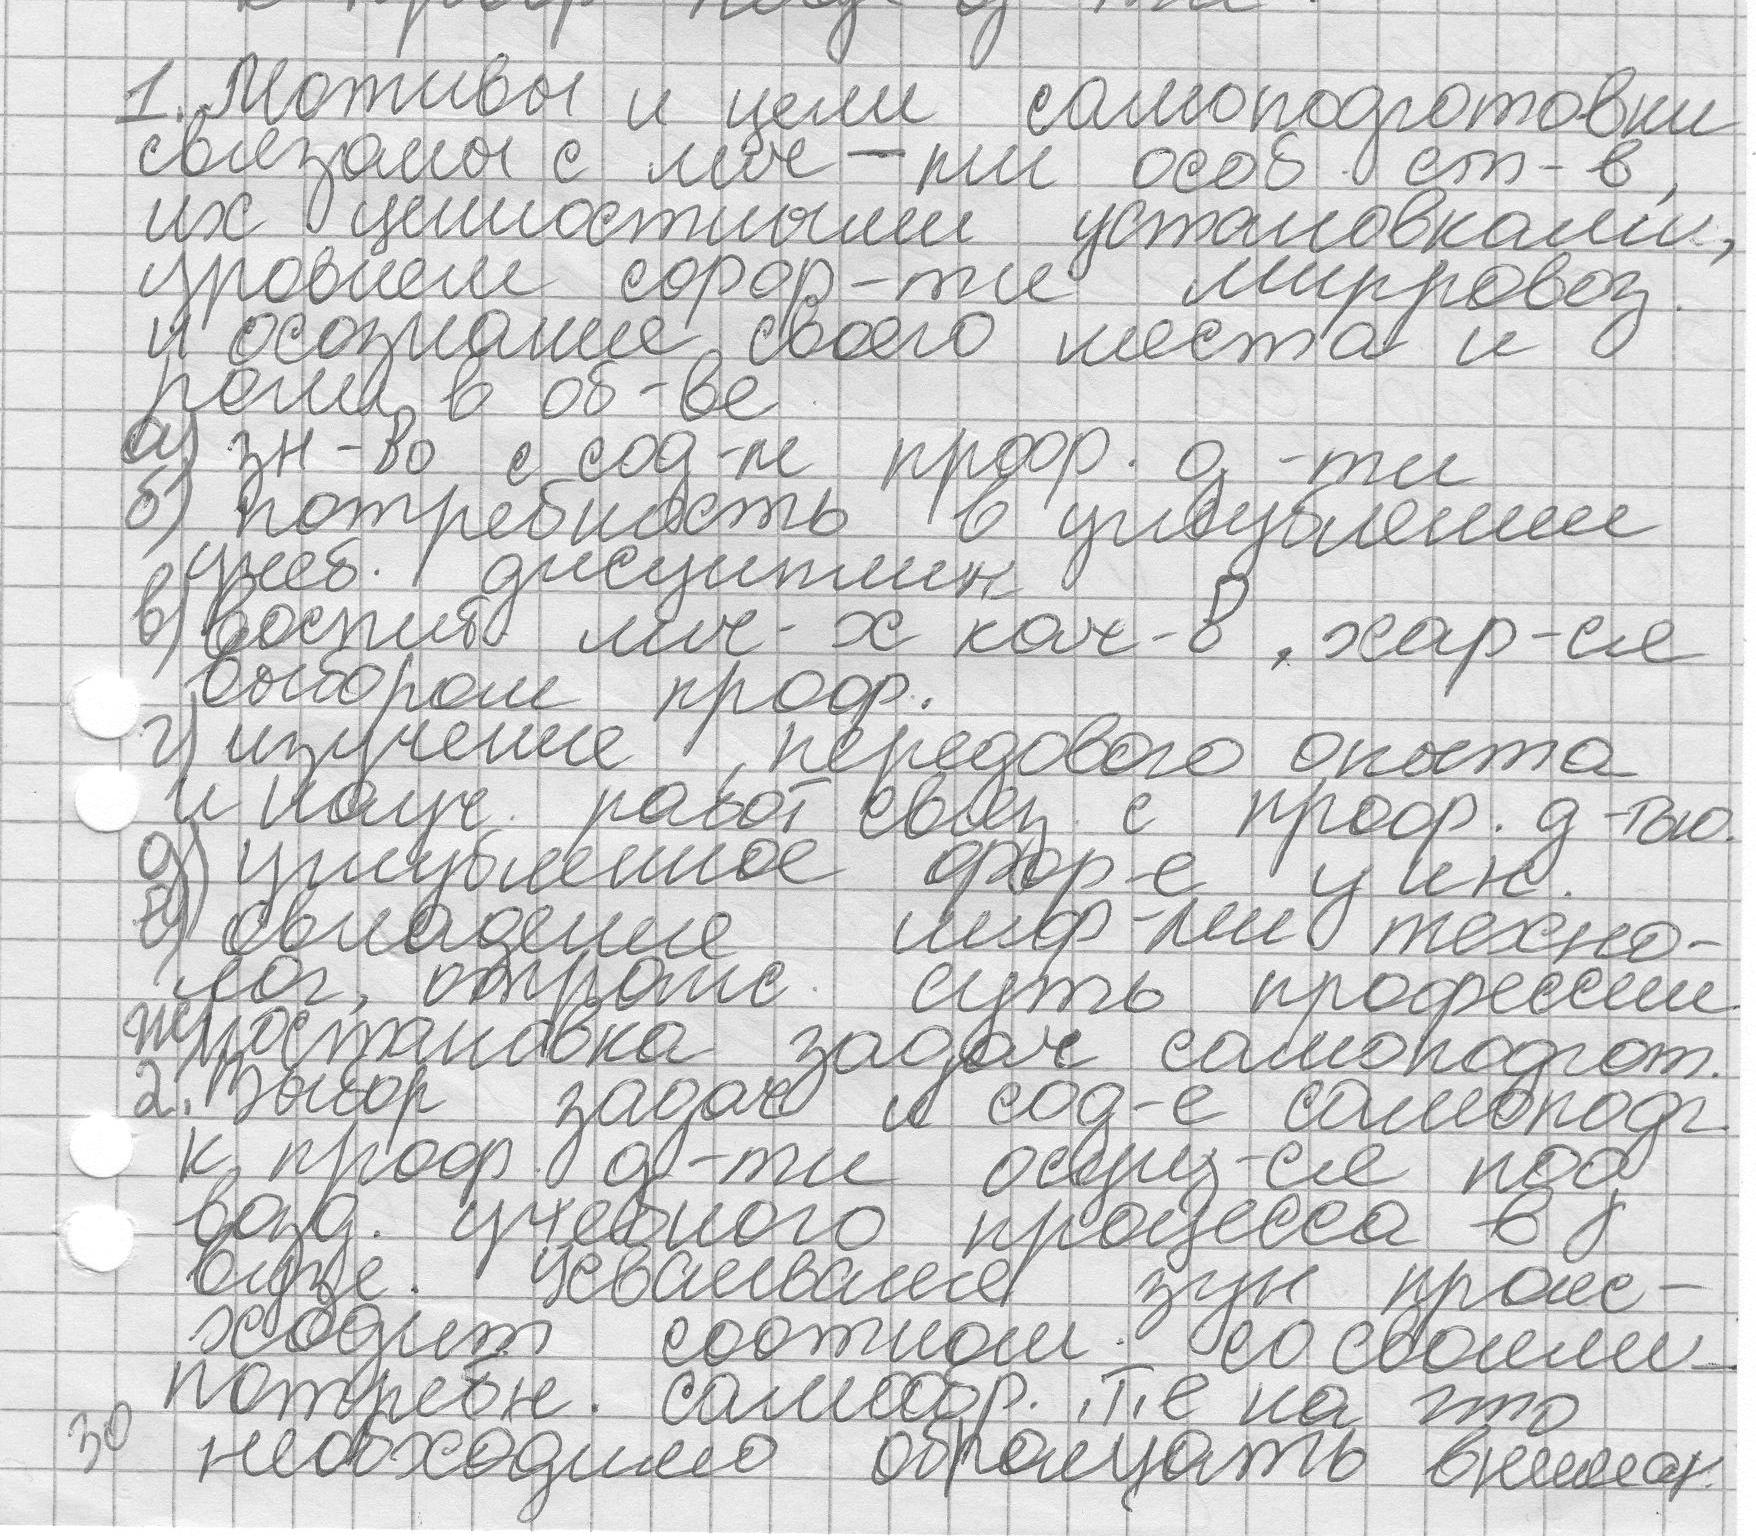 1. Мотивы и цели самоподготовки
связаны с лич-ми особ. ст-в,
их ценностными установками,
уровнем сфор-ти мирровоз.
и осознание своего места и
роли в об-ве.
а) зн-во с сод-м проф. д-ти
б) потребность в углублении
учеб. дисциплин
в) воспит. лич-х кач-в, хар-ся
выбором проф.
г) изучение передового опыта
и науч. работ связ. с проф. д-тью.
д) углубленное фор-е уин.
е) овладение инф-ми техно-
лог, отраж. суть профессии
ж) постановка задач самоподгот.
2. Выбор задач и сод-е самоподг.
к проф. д-ти осущ-ся под
возд. учебного процесса в
вузе. Усваивание зун проис-
ходит соотнош. со своими
потребн. самообр. Т.е на что
необходимо обращать вниман.
30